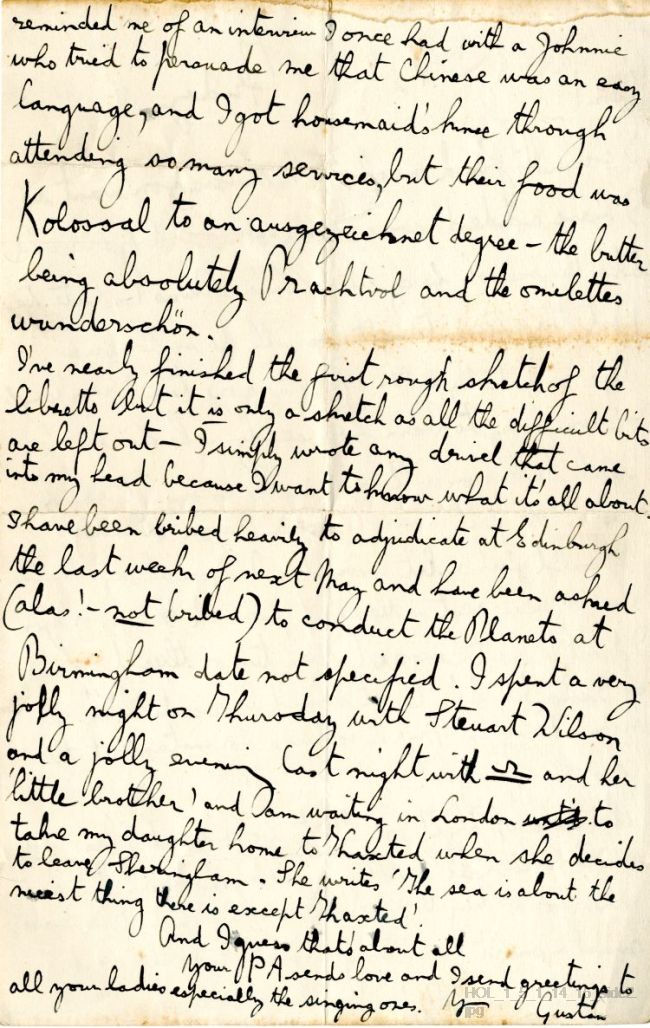 reminded me of an interview I once had with a Johnnie
who tried to persuade me that Chinese was an easy
language, and I got housemaid's knee through
attending so many services, but their food was
Kolossal to an ausgezeichnet degree – the butter
being absolutely Prachtvol and the omelettes
wunderschön.
I've nearly finished the first rough sketch of the
libretto but it is only a sketch as all the difficult bits
are left out – I simply wrote any drivel that came
into my head because I want to know what it's all about.
I have been bribed heavily to adjudicate at Edinburgh
the last week of next May and have been asked
(alas! – not bribed) to conduct the Planets at
Birmingham date not specified. I spent a very
jolly night on Thursday with Steuart Wilson
and a jolly evening last night with and her
'little brother' and I am waiting in London to
take my daughter home to Thaxted when she decides
to leave Sheringham. She writes 'The sea is about the
nicest thing there is except Thaxted'.
And I guess that's about all
Your PA sends love and I send greetings to
all your ladies especially the singing ones. Gustav